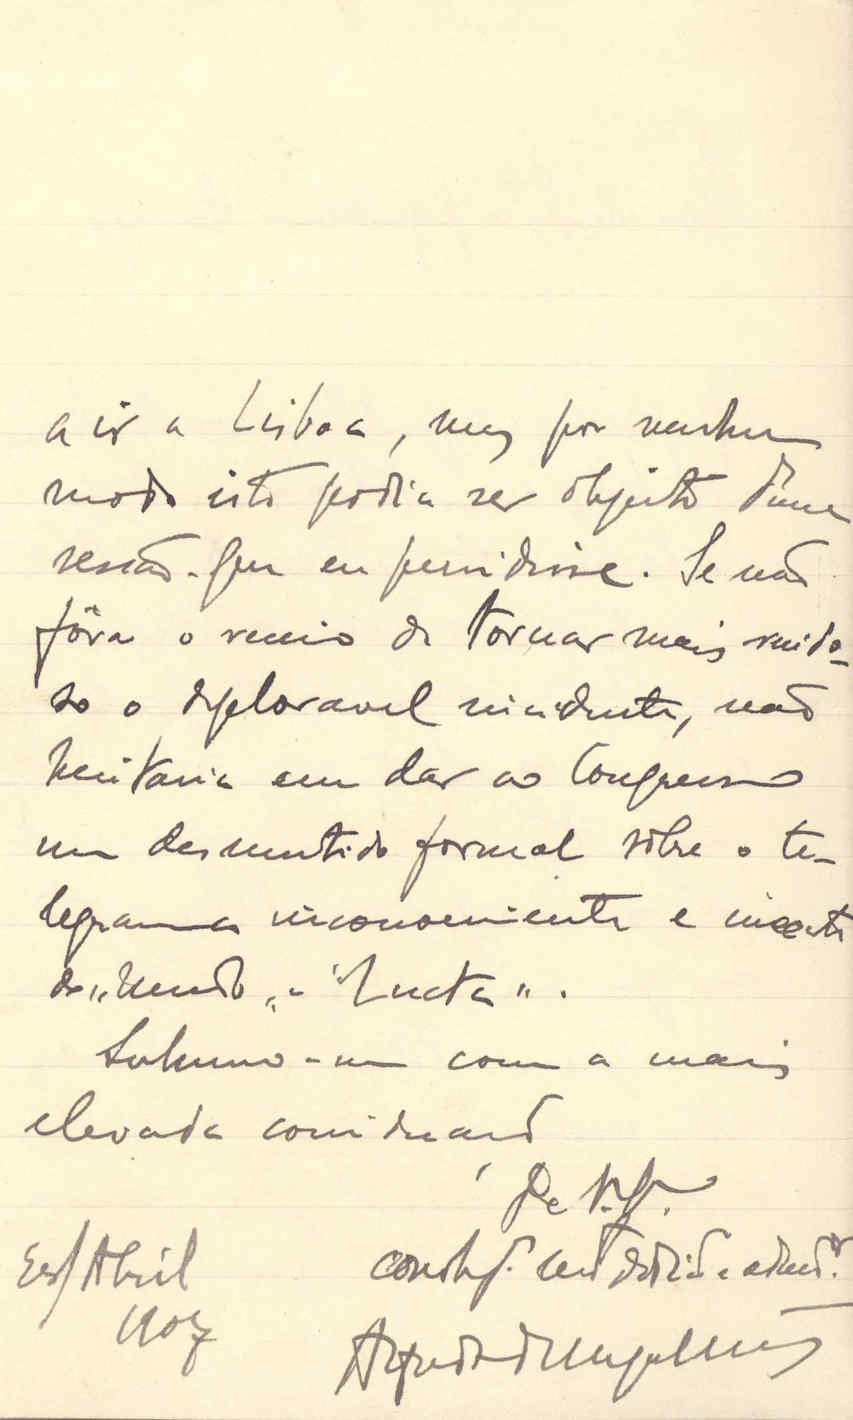 a ir a Lisboa, mas por nenhum
modo isto podia ser objecto d'uma
sessão que eu presidisse. Se não
fôra o receio de tornar mais ruido-
so o deploravel incidente, não
hesitaria em dar ao Congresso
um desmentido formal sôbre o te-
legramma inconveniente e
do "Mundo" e "Lucta".
Subscrevo-me com a mais
elevada consideração
De V.
cor. m.to dedic.do e adm.or
Abril
1907
Alfredo de Magalhães